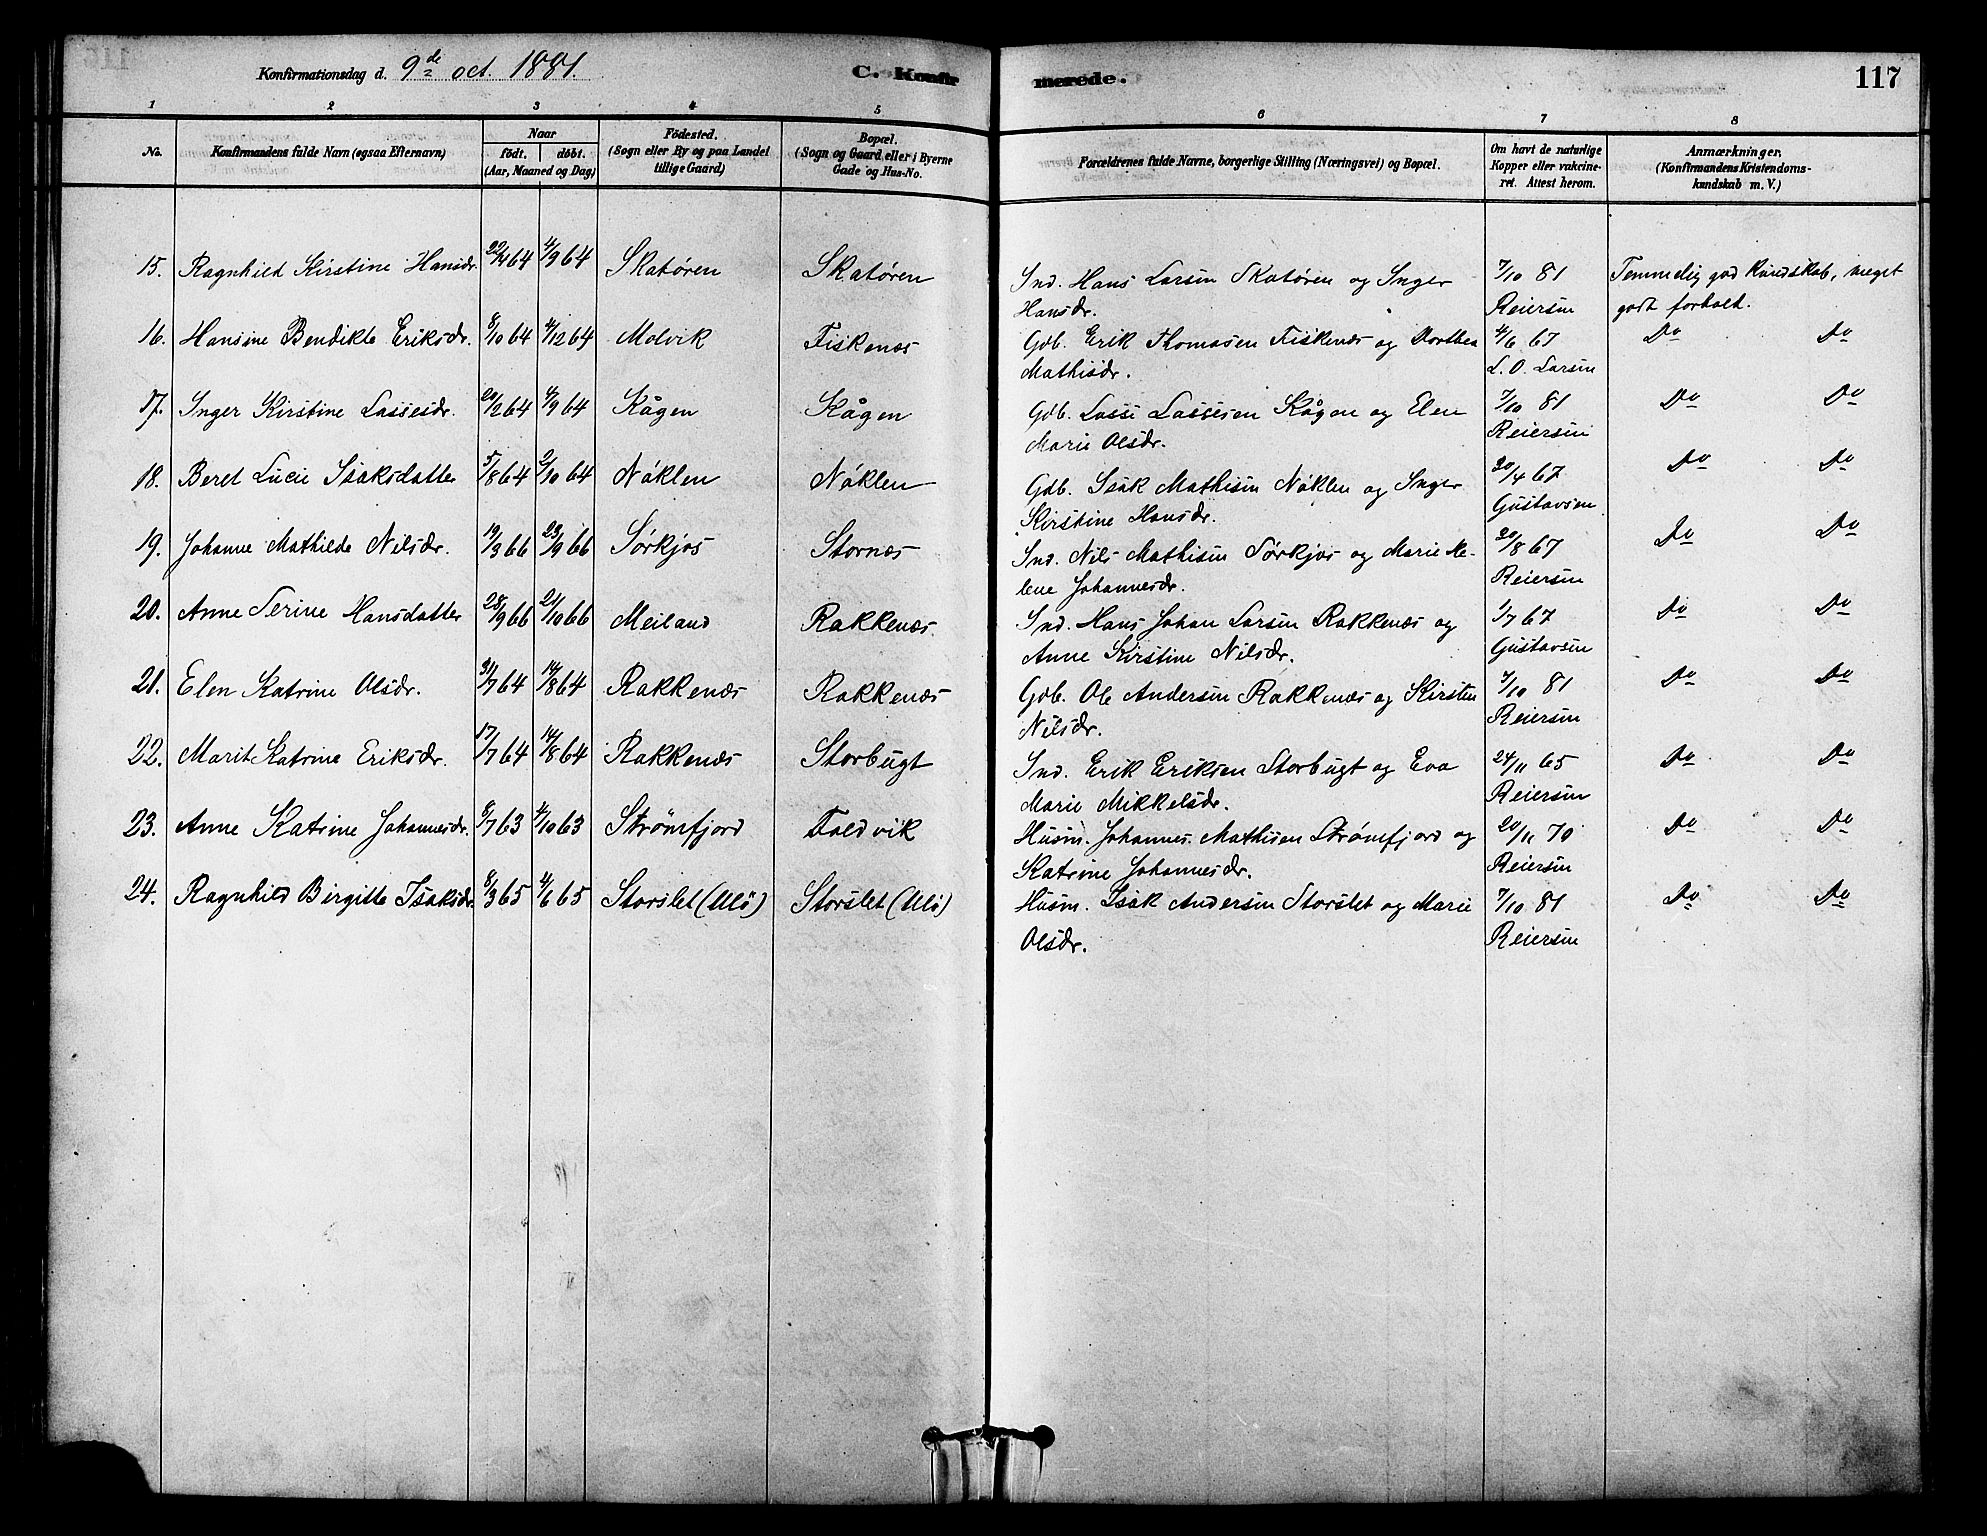 Konfirmationsdag d. 9de oct. 1881.
C. Konfirmerede.
117
1 2 3 4 5 6 7 8
No.
Konfirmandens fulde Navn (ogsaa Efternavn)
Naar
født. døbt.
(Aar, Maaned og Dag)
Födested.
(Sogn eller By og paa Landet
tillige Gaard)
Bopæl.
(Sogn og Gaard eller i Byerne
Gade og Hus-No.
Forældrenes fulde Navne, borgerlige Stilling (Næringsvei) og Bopæl.
Om havt de naturlige
Kopper eller vakcine-
ret. Attest herom.
Anmærkninger.
(Konfirmandens Kristendoms-
kundskab m. V.)
15. Ragnhild Kirstine Hansdr. 22/4 64 4/9 64 Skatøren Skatøren Ind. Hans Larsen Skatøren og Inger 7/10 81 Temmelig god Kundskab, meget
Hansdr. Reiersen godt forhold.
16. Hansine Bendikte Eriksdr. 8/10 64 4/12 64 Molvik Fiskenæs Gdb. Erik Thomasen Fiskenæs og Dorthea 4/6 67 Do Do
Mathisdr. L. O. Larsen
17. Inger Kirstine Lassesdr. 20/2 64 4/9 64 Kågen Kågen Gdb. Lasse Lassesen Kågen og Elen 7/10 81 Do Do
Marie Olsdr. Reiersen
18. Beret Lucie Isaksdatter 5/8 64 2/10 64 Nöklen Nöklen Gdb. Isak Mathisen Nöklen og Inger 20/4 67 Do Do
Kirstine Hansdr. Gustavsen
19. Johanne Mathilde Nilsdr. 19/3 66 23/9 66 Sørkjos Stornæs Ind. Nils Mathisen Sørkjos og Marie He- 20/8 67 Do Do
lene Johannesdr. Reiersen
20. Anne Serine Hansdatter 28/9 66 21/10 66 Meiland Rakkenæs Ind. Hans Johan Larsen Rakkenæs og 1/7 67 Do Do
Anne Kirstine Nilsdr. Gustavsen
21. Elen Katrine Olsdr. 31/7 64 14/8 64 Rakkenæs Rakkenæs Gdb. Ole Andersen Rakkenæs og Kirsten 7/10 81 Do Do
Nilsdr. Reiersen
22. Marit Katrine Eriksdr. 17/7 64 14/8 64 Rakkenæs Storbugt Ind. Erik Eriksen Storbugt og Eva 24/11 65 Do Do
Marie Mikkelsdr. Reiersen
23. Anne Katrine Johannesdr. 8/7 63 4/10 63 Strömfjord Foldvik Husm. Johannes Mathisen Strömfjord og 20/11 70 Do Do
Katrine Johannesdr. Reiersen
24. Ragnhild Birgitte Isaksdr. 8/3 65 4/6 65 Storslet (Ulö) Storslet (Ulö) Husm. Isak Andersen Storslet og Marie 7/10 81 Do Do
Olsdr. Reiersen